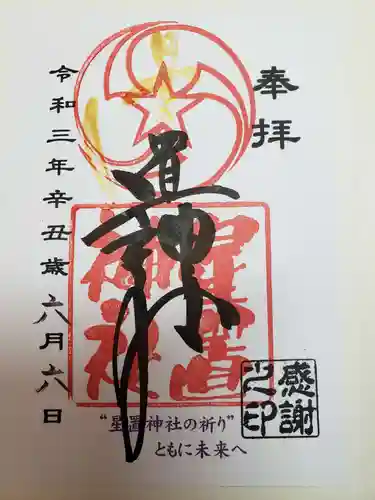 奉拝
星置神社
星置神社
令和三年辛丑歳六月六日
感謝之印
“星置神社の祈り”
ともに未来へ